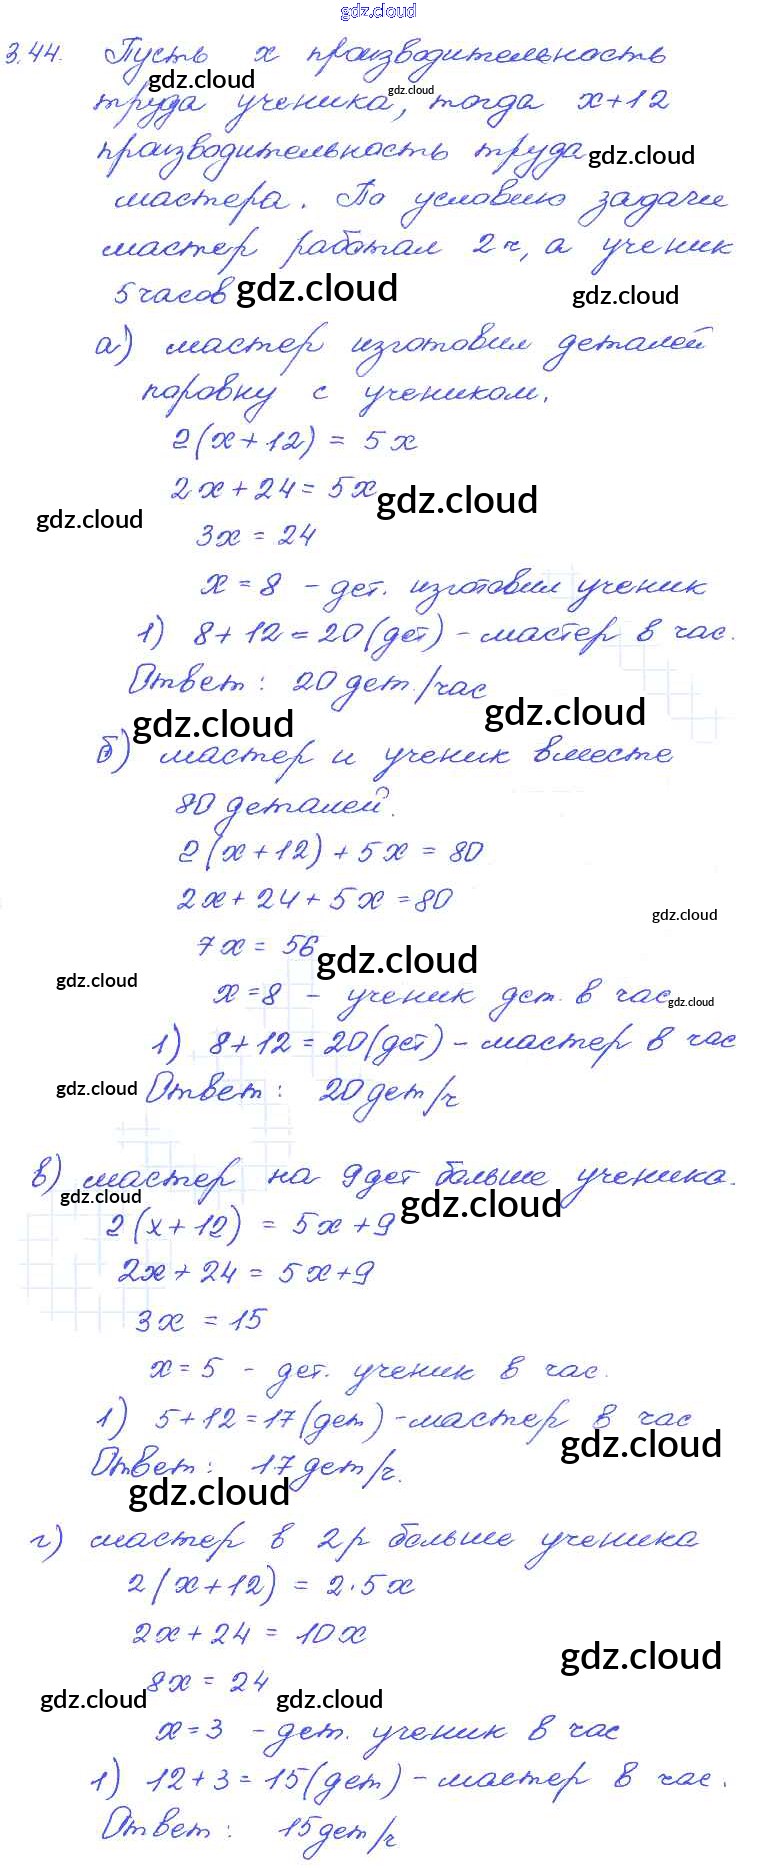 gdz.cloud
3.44. Пусть x производительность
gdz.cloud gdz.cloud
труда ученика, тогда x+12
производительность труда gdz.cloud
мастера. По условию задачи
мастер работал 2 ч, а ученик
5 часов gdz.cloud gdz.cloud
а) мастер изготовил деталей
поровну с учеником.
2(x+12) = 5x
2x+24 = 5x gdz.cloud
gdz.cloud 3x = 24
x = 8 - дет. изготовил ученик
1) 8+12=20(дет) - мастер в час.
Ответ: 20 дет./час
gdz.cloud gdz.cloud
б) мастер и ученик вместе
80 деталей.
2(x+12)+5x = 80
2x+24+5x=80
gdz.cloud
7x = 56 gdz.cloud
gdz.cloud x=8 - ученик дет. в час gdz.cloud
1) 8+12=20(дет) - мастер в час
gdz.cloud Ответ: 20 дет/ч
в) мастер на 9 дет больше ученика.
gdz.cloud gdz.cloud
2(x+12) = 5x+9
2x+24 = 5x+9
3x = 15
x=5 - дет. ученик в час.
1) 5+12=17(дет) - мастер в час
gdz.cloud
Ответ: 17 дет/ч.
gdz.cloud
г) мастер в 2р больше ученика
2(x+12) = 2·5x
2x+24 = 10x
gdz.cloud
8x = 24
gdz.cloud gdz.cloud
x=3 - дет. ученик в час
1) 12+3=15(дет) - мастер в час.
Ответ: 15 дет/ч